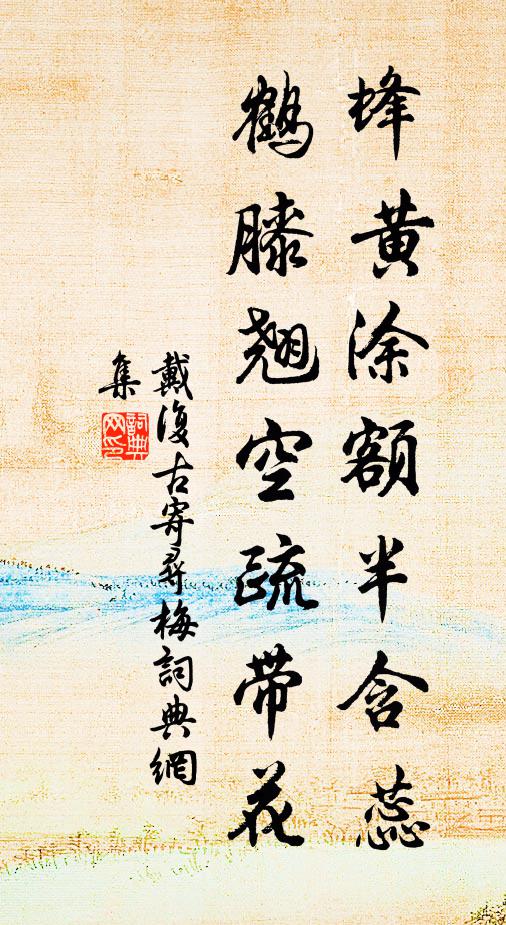 蜂黄涂额半含蕊
鹤膝翘空疏带花
戴復古寄尋梅詞典網
集
詞典
网印